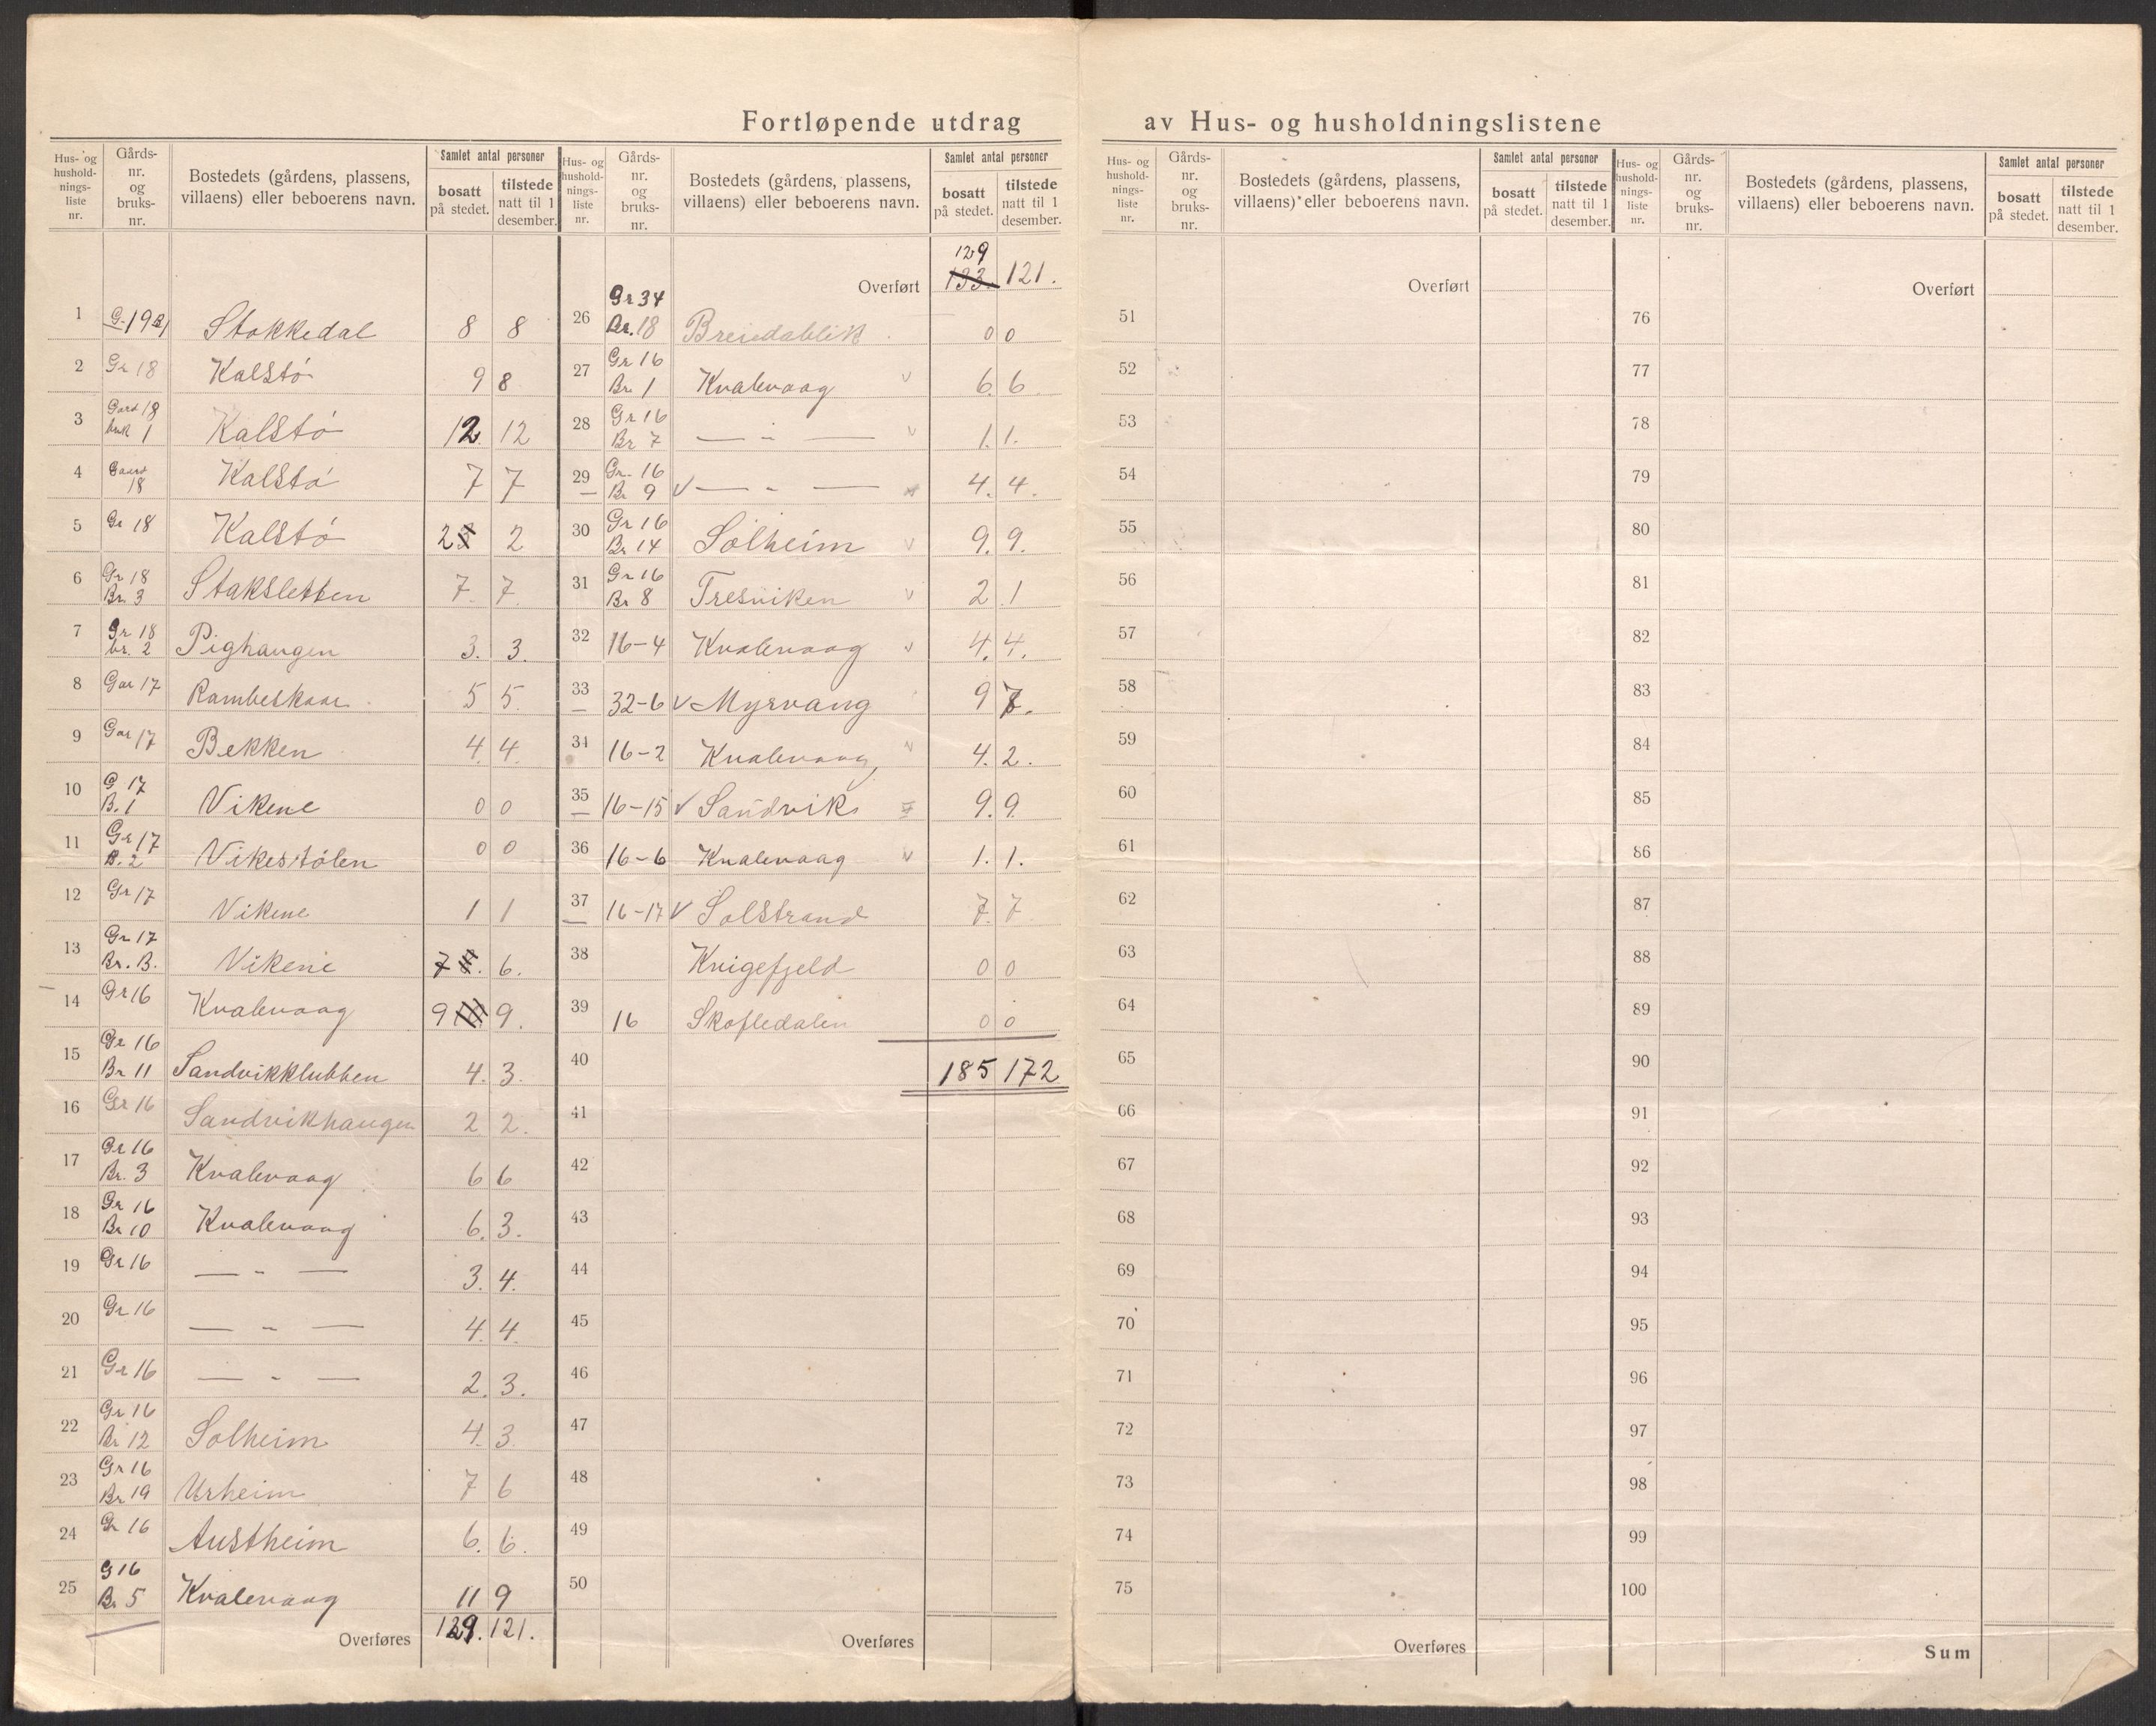 Fortløpende utdrag av Hus- og husholdningslistene
Hus- og hushold-nings-liste nr. | Gårds-nr. og bruks-nr. | Bostedets (gårdens, plassens, villaens) eller beboerens navn. | Samlet antal personer: bosatt på stedet. | tilstede natt til 1 desember.
1 | G. 19 | Stokkedal | 8 | 8
2 | Gr 18 | Kalstø | 9 | 8
3 | Gard 18 bruk 1 | Kalstø | 12. | 12
4 | Gaard 18 | Kalstø | 7 | 7
5 | Gr 18 | Kalstø | 2 | 2
6 | Gr 18 Br. 3 | Staksletten | 7. | 7.
7 | Gr 18 br. 2 | Pighaugen | 3. | 3.
8 | Gar 17 | Rambeskaar | 5 | 5.
9 | Gar 17 | Bekken | 4. | 4.
10 | G 17 B. 1 | Vikene | 0 | 0
11 | Gr 17 B. 2 | Vikestølen | 0 | 0
12 | Gr 17 | Vikene | 1 | 1
13 | Gr 17 Br. B. | Vikene | 7 | 6.
14 | Gr 16 | Kvalevaag | 9 | 9.
15 | Gr 16 Br 11 | Sandvikklubben | 4. | 3.
16 | Gr 16 | Sandvikhaugen | 2 | 2.
17 | Gr 16 Br. 3 | Kvalevaag | 6 | 6
18 | Gr 16 Br 10 | Kvalevaag | 6. | 3.
19 | Gr 16 | — " — | 3. | 4.
20 | Gr 16 | — " — | 4. | 4.
21 | Gr 16 | — " — | 2. | 3.
22 | Gr 16 Br 12 | Solheim | 4. | 3
23 | Gr 16 Br 19 | Urheim | 7 | 6
24 | Gr 16 | Austheim | 6. | 6.
25 | G 16 Br 5 | Kvalevaag | 11 | 9
Overføres | 129. | 121.
Hus- og hushold-nings-liste nr. | Gårds-nr. og bruks-nr. | Bostedets (gårdens, plassens, villaens) eller beboerens navn. | Samlet antal personer: bosatt på stedet. | tilstede natt til 1 desember.
Overført | 129 133. | 121.
26 | Gr 34 Br. 18 | Breidablik | 0 | 0
27 | Gr 16 Br. 1 | Kvalevaag v | 6. | 6
28 | Gr 16 Br 7 | — " — v | 1. | 1.
29 | Gr. 16 Br 9 | v — " — | 4. | 4.
30 | Gr 16 Br 14 | Solheim v | 9. | 9.
31 | Gr 16 Br 8 | Tresviken v | 2. | 1
32 | 16-4 | Kvalevaag v | 4. | 4.
33 | 32-6 | v Myrvang | 9 |
34 | 16-2 | Kvalevaag v | 4. | 2.
35 | 16-15 | v Sandvik | 9. | 9.
36 | 16-6 | Kvalevaag v | 1. | 1.
37 | 16-17 | v Solstrand | 7. | 7
38 | Knigefjeld | 0 | 0
39 | 16 | Skofledalen | 0 | 0
40 | 185 | 172
41
42
43
44
45
46
47
48
49
50
Overføres
Hus- og hushold-nings-liste nr. | Gårds-nr. og bruks-nr. | Bostedets (gårdens, plassens, villaens) eller beboerens navn. | Samlet antal personer: bosatt på stedet. | tilstede natt til 1 desember.
Overført
51
52
53
54
55
56
57
58
59
60
61
62
63
64
65
66
67
68
69
70
71
72
73
74
75
Overføres
Hus- og hushold-nings-liste nr. | Gårds-nr. og bruks-nr. | Bostedets (gårdens, plassens, villaens) eller beboerens navn. | Samlet antal personer: bosatt på stedet. | tilstede natt til 1 desember.
Overført
76
77
78
79
80
81
82
83
84
85
86
87
88
89
90
91
92
93
94
95
96
97
98
99
100
Sum